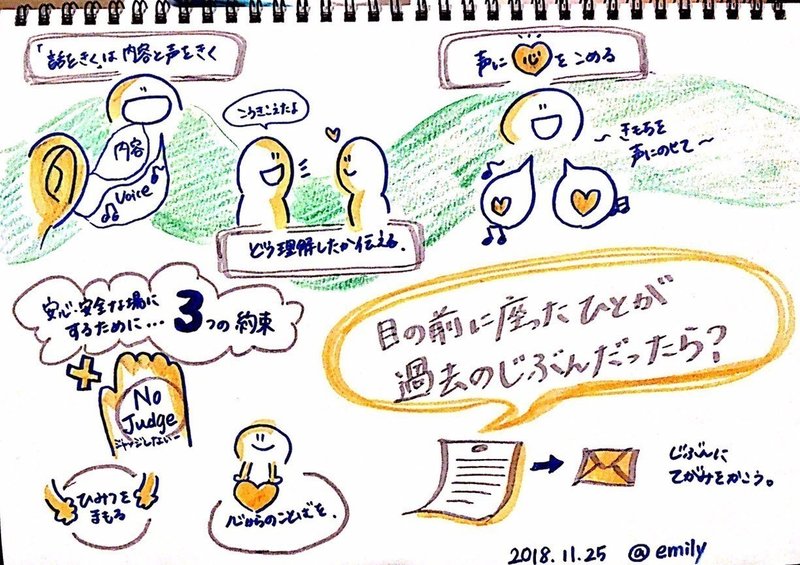 「話をきく」は内容と声をきく
内容
Voice
こうきこえたよ
どう理解したか伝える.
声に心をこめる
〜きもちを
声にのせて〜
安心・安全な場に
するために… 3つの約束
No
Judge
ジャッジしない
ひみつを
まもる
心からのことばを.
目の前に座ったひとが
過去のじぶんだったら?
じぶんに
てがみをかこう。
2018.11.25 @emily